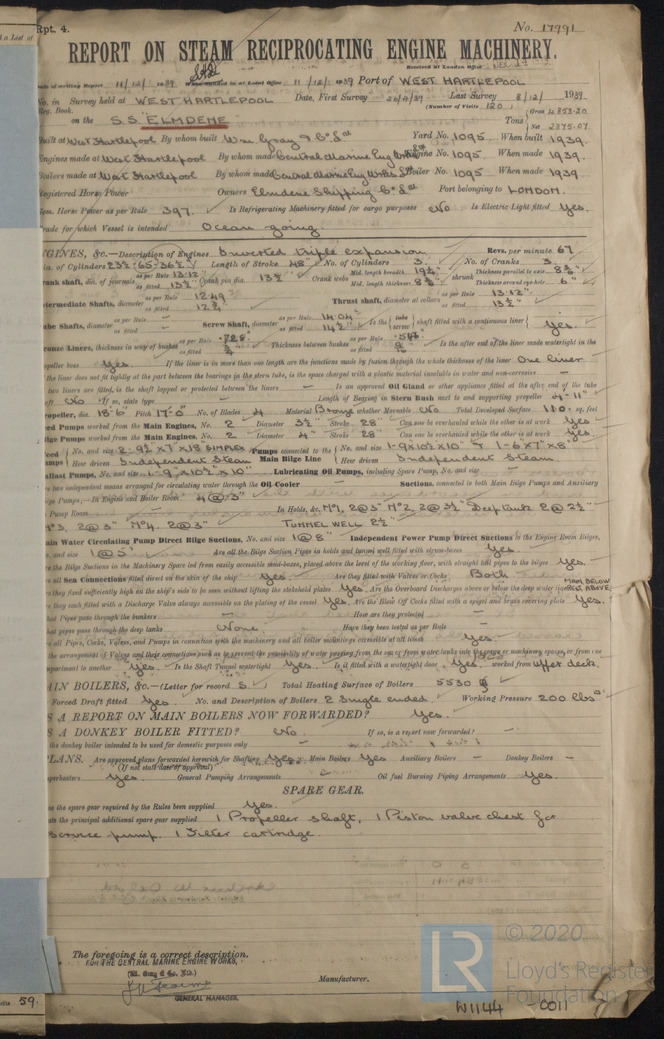 n a List of
Rpt. 4.
No. 17991
REPORT ON STEAM RECIPROCATING ENGINE MACHINERY.
Received at London Office
Date of writing Report 11/12/1939 When handed in at Local Office 11/12/1939 Port of WEST HARTLEPOOL
No. in Survey held at WEST HARTLEPOOL Date, First Survey Last Survey 8/12/1939
Reg. Book. (Number of Visits 120)
on the S.S. "ELMDENE" Tons Gross 4853.20
Net 2875.07
Built at West Hartlepool By whom built Wm Gray & Co Ltd Yard No. 1095 When built 1939.
Engines made at West Hartlepool By whom made Central Marine Eng Works Engine No. 1095 When made 1939.
Boilers made at West Hartlepool By whom made Central Marine Eng Works Boiler No. 1095 When made 1939
Registered Horse Power Owners Elmdene Shipping Co Ltd Port belonging to LONDON.
Nom. Horse Power as per Rule 397. Is Refrigerating Machinery fitted for cargo purposes No Is Electric Light fitted Yes.
Trade for which Vessel is intended Ocean going
ENGINES, &c.—Description of Engines Inverted triple expansion Revs. per minute 67
Dia. of Cylinders Length of Stroke 48" No. of Cylinders 3. No. of Cranks 3.
Crank shaft, dia. of journals as per Rule 13.12" as fitted 13½" Crank pin dia. 13½" Crank webs Mid. length breadth Mid. length thickness shrunk Thickness parallel to axis Thickness around eye-hole 6"
Intermediate Shafts, diameter as per Rule 12.49 as fitted Thrust shaft, diameter at collars as per Rule 13.12" as fitted 13½"
Tube Shafts, diameter as per Rule — as fitted — Screw Shaft, diameter as per Rule 14.04" as fitted Is the tube screw shaft fitted with a continuous liner Yes.
Bronze Liners, thickness in way of bushes as per Rule .728" as fitted Thickness between bushes as per Rule as fitted Is the after end of the liner made watertight in the
propeller boss Yes. If the liner is in more than one length are the junctions made by fusion through the whole thickness of the liner One liner
If the liner does not fit tightly at the part between the bearings in the stern tube, is the space charged with a plastic material insoluble in water and non-corrosive —
If two liners are fitted, is the shaft lapped or protected between the liners — Is an approved Oil Gland or other appliance fitted at the after end of the tube
shaft No If so, state type — Length of Bearing in Stern Bush next to and supporting propeller 4'-11"
Propeller, dia. 18'-6" Pitch 17'-0" No. of Blades 4 Material Bronze whether Moveable No Total Developed Surface 110 sq. feet
Feed Pumps worked from the Main Engines, No. 2 Diameter 3½" Stroke 28" Can one be overhauled while the other is at work Yes.
Bilge Pumps worked from the Main Engines, No. 2 Diameter 4" Stroke 28" Can one be overhauled while the other is at work Yes.
Feed Pumps No. and size 2-9½"x7"x18" SIMPLEX How driven Independent Steam Pumps connected to the Main Bilge Line No. and size How driven Independent Steam
Ballast Pumps, No. and size Lubricating Oil Pumps, including Spare Pump, No. and size —
Are two independent means arranged for circulating water through the Oil Cooler — Suctions, connected to both Main Pumps and Auxiliary
Bilge Pumps;—In Engine and Boiler Room 4 @ 3"
In Pump Room — In Holds, &c. No 1, 2@3" No 2, 2@3½" Deep tank 2 @ 2½"
No 3, 2@3" No 4. 2@3" TUNNEL WELL 2½"
Main Water Circulating Pump Direct Bilge Suctions, No. and size 1 @ 8" Independent Power Pump Direct Suctions to the Engine Room Bilges,
No. and size 1 @ 5" Are all the Bilge Suction Pipes in holds and tunnel well fitted with strum-boxes Yes.
Are the Bilge Suctions in the Machinery Space led from easily accessible mud-boxes, placed above the level of the working floor, with straight tail pipes to the bilges Yes.
Are all Sea Connections fitted direct on the skin of the ship Yes. Are they fitted with Valves or Cocks Both
Are they fixed sufficiently high on the ship's side to be seen without lifting the stokehold plates Yes. Are the Overboard Discharges above or below the deep water line MAIN BELOW REST ABOVE
Are they each fitted with a Discharge Valve always accessible on the plating of the vessel Yes. Are the Blow Off Cocks fitted with a spigot and brass covering plate Yes.
What Pipes pass through the bunkers — How are they protected —
What pipes pass through the deep tanks None. Have they been tested as per Rule —
Are all Pipes, Cocks, Valves, and Pumps in connection with the machinery and all boiler mountings accessible at all times Yes.
Is the arrangement of Valves and their connections such as to prevent the possibility of water passing from the sea or from water tanks into the cargo or machinery spaces, or from one
compartment to another Yes. Is the Shaft Tunnel watertight Yes. Is it fitted with a watertight door Yes. worked from upper deck.
MAIN BOILERS, &c.—(Letter for record S.) Total Heating Surface of Boilers 5530
Forced Draft fitted Yes. No. and Description of Boilers 2 Single ended. Working Pressure 200 lbs
IS A REPORT ON MAIN BOILERS NOW FORWARDED? Yes.
IS A DONKEY BOILER FITTED? No. If so, is a report now forwarded? —
Is the donkey boiler intended to be used for domestic purposes only —
PLANS. Are approved plans forwarded herewith for Shafting Yes Main Boilers Yes Auxiliary Boilers — Donkey Boilers —
(If not state date of approval)
Superheaters Yes. General Pumping Arrangements Oil fuel Burning Piping Arrangements Yes.
SPARE GEAR.
Has the spare gear required by the Rules been supplied Yes.
State the principal additional spare gear supplied 1 Propeller shaft, 1 Piston valve chest for
service pump. 1 Filter cartridge.
The foregoing is a correct description.
FOR THE CENTRAL MARINE ENGINE WORKS,
(Wm. Gray & Co. Ltd.)
GENERAL MANAGER.
Manufacturer.
59.
LR
© 2020
Lloyd's Register
Foundation
W1144 - 0011